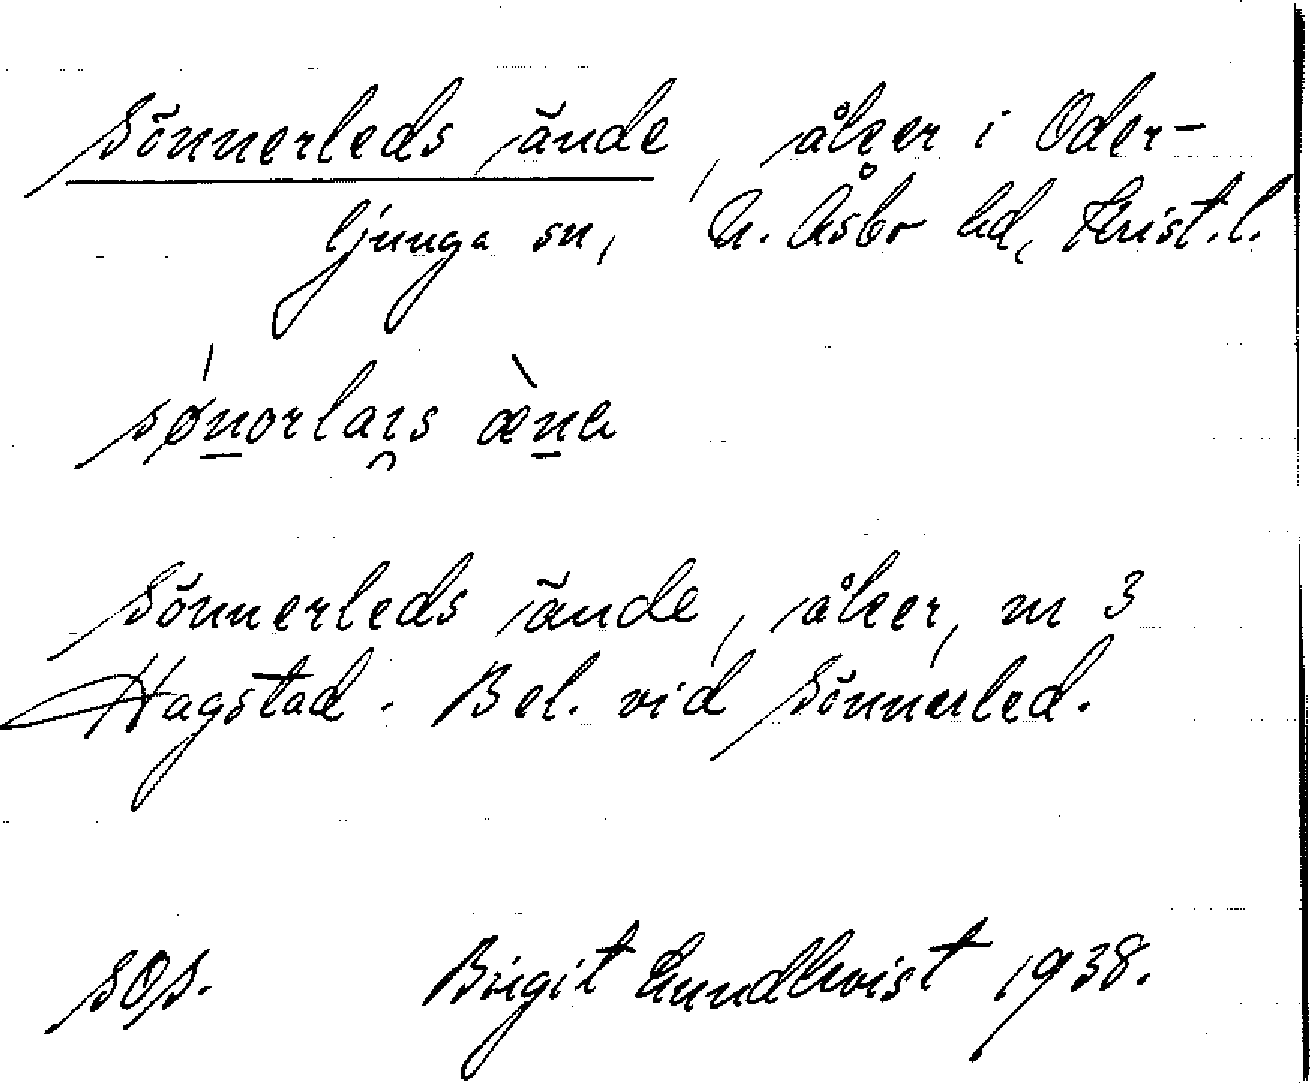 Sönnerleds ände, åker i Oder-
ljunga sn, N. Åsbo hd, Krist.l.
sønorlaıs æna
Sönnerleds ände, åker, m 3
Hagstad. Bel. vid Sönnerled.
SOS. Birgit Lundkvist 1938.